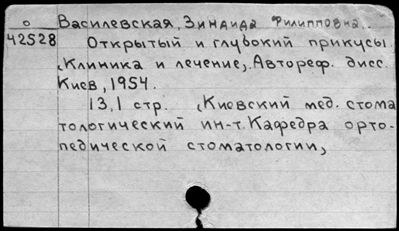 о Василевская, Зинаида Филипповна..
42528 Открытый и глубокий прикусы.
(Клиника и лечение). Автореф. дисс.
Киев, 1954.
13,1 стр. (Киевский мед. стома
тологический ин-т. Кафедра орто-
педической стоматологии)